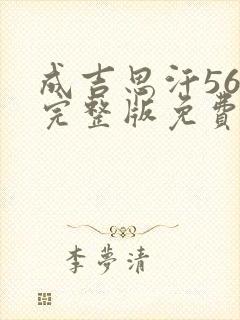 成吉思汗56
完整版免費
李夢清